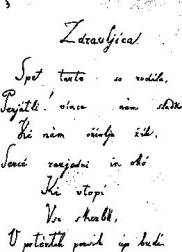 Zdravljica!
Spet terte so rodile,
Perjatli! vince nam sladko
Ki nam oživlja žile,
Sercé razjasni in okó
Ki utopi
Vse skerbi,
V potertih persih up budi